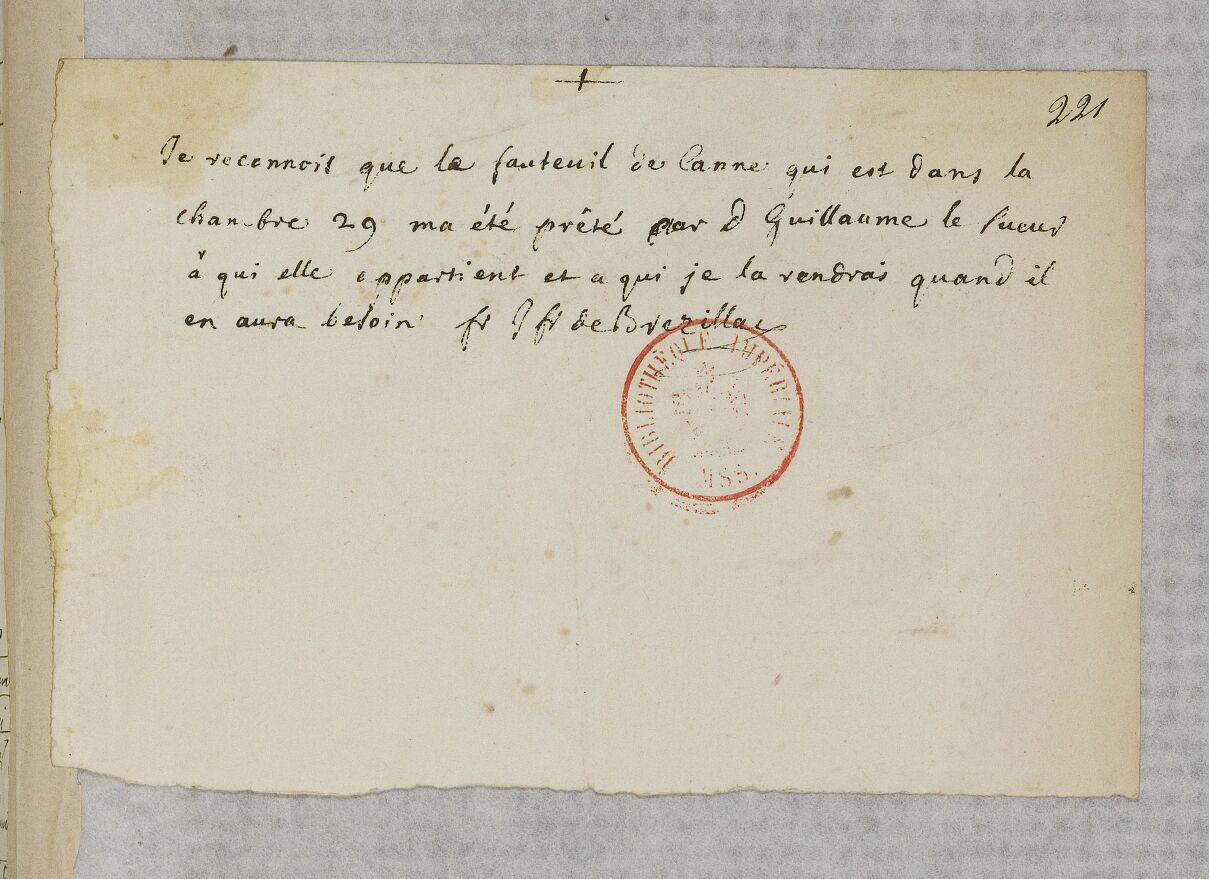 221
Je reconnois que le fauteuil de Canne qui est dans la
chambre 29 ma été prêté par d Guillaume le Sueur
à qui elle appartient et a qui je la rendrai quand il
en aura besoin fr J fr de Brezillac
BIBLIOTHÈQUE IMPÉRIALE
MSS.